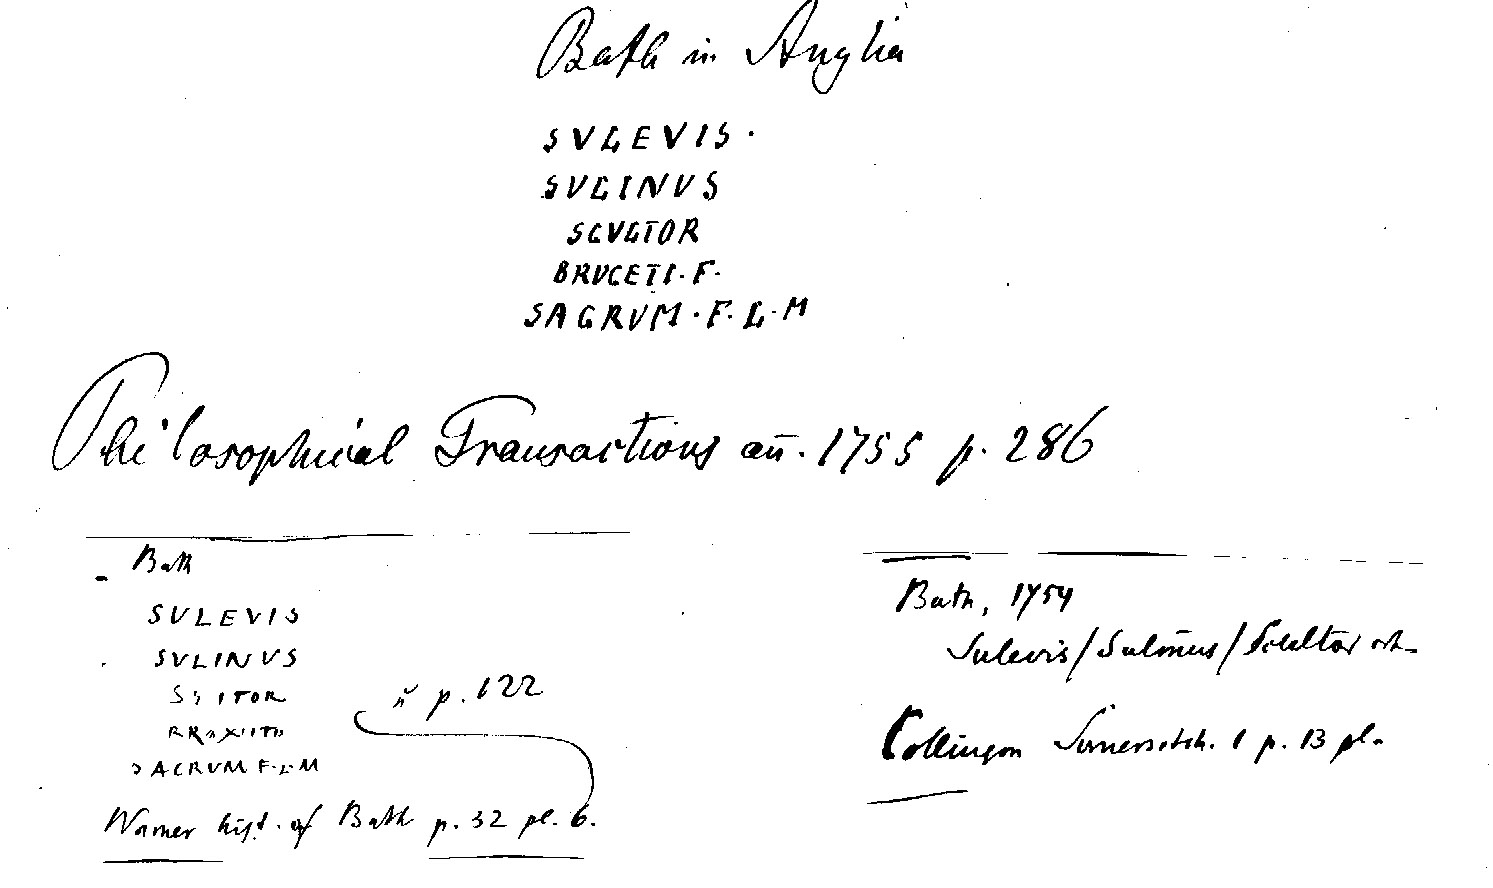 Bath in Anglia
SVLEVIS ·
SVLINVS
SCVLTOR
BRVCETI · F ·
SACRVM · F · L · M
Philosophical Transactions an̄. 1755 p. 286
Bath
SULEVIS
SVLINVS
SACRVM F·L·M
p. 122
Warner hist. of Bath p. 32 pl. 6.
Bath, 1754
Sulevis / Sulinus / Scultor
p. 13 pl.